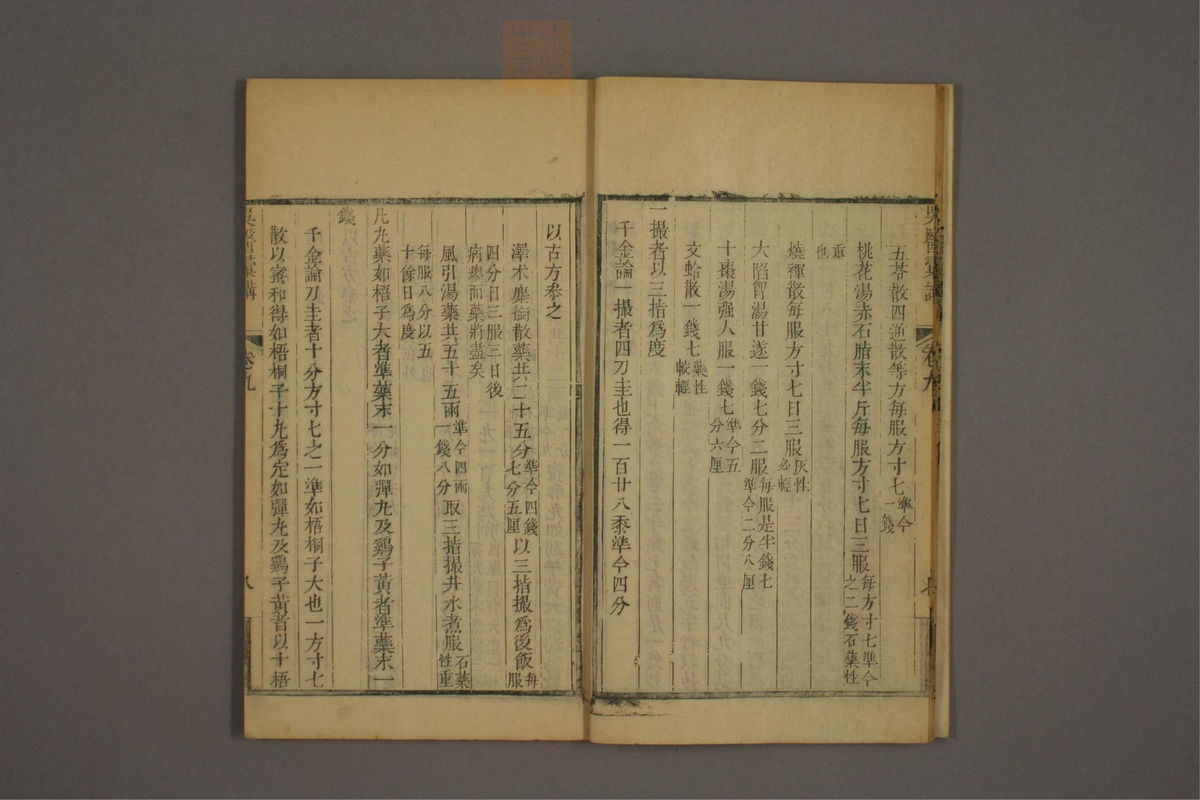 五苓散四逆散等方每服方寸七準今一錢
桃花湯赤石脂末半斤每服方寸七日三服每方寸七準今之二錢石藥性
重也
燒裈散每服方寸七日三服灰性必輕
大陷胷湯甘遂一錢七分二服每服是半錢七準今二分八厘
十棗湯强人服一錢七準今五分六厘
文蛤散一錢七藥性較輕
一撮者以三指爲度
千金論一撮者四刀圭也得一百廿八黍準今四分
以古方叅之
澤朮麋銜散藥共二十五分準今四錢七分五厘以三指撮爲後飯每服
四分日三服三日後病瘳而藥將盡矣
風引湯藥共五十五兩準今四兩一錢八分取三指撮井水煮服石藥性重
每服八分以五十餘日爲度
凡丸藥如梧子大者準藥末一分如彈丸及鷄子黃者準藥末一
錢
千金論刀圭者十分方寸七之一準如梧桐子大也一方寸七
散以蜜和得如梧桐子十丸爲定如彈丸及鷄子黃者以十梧
吳醫彙講
卷九